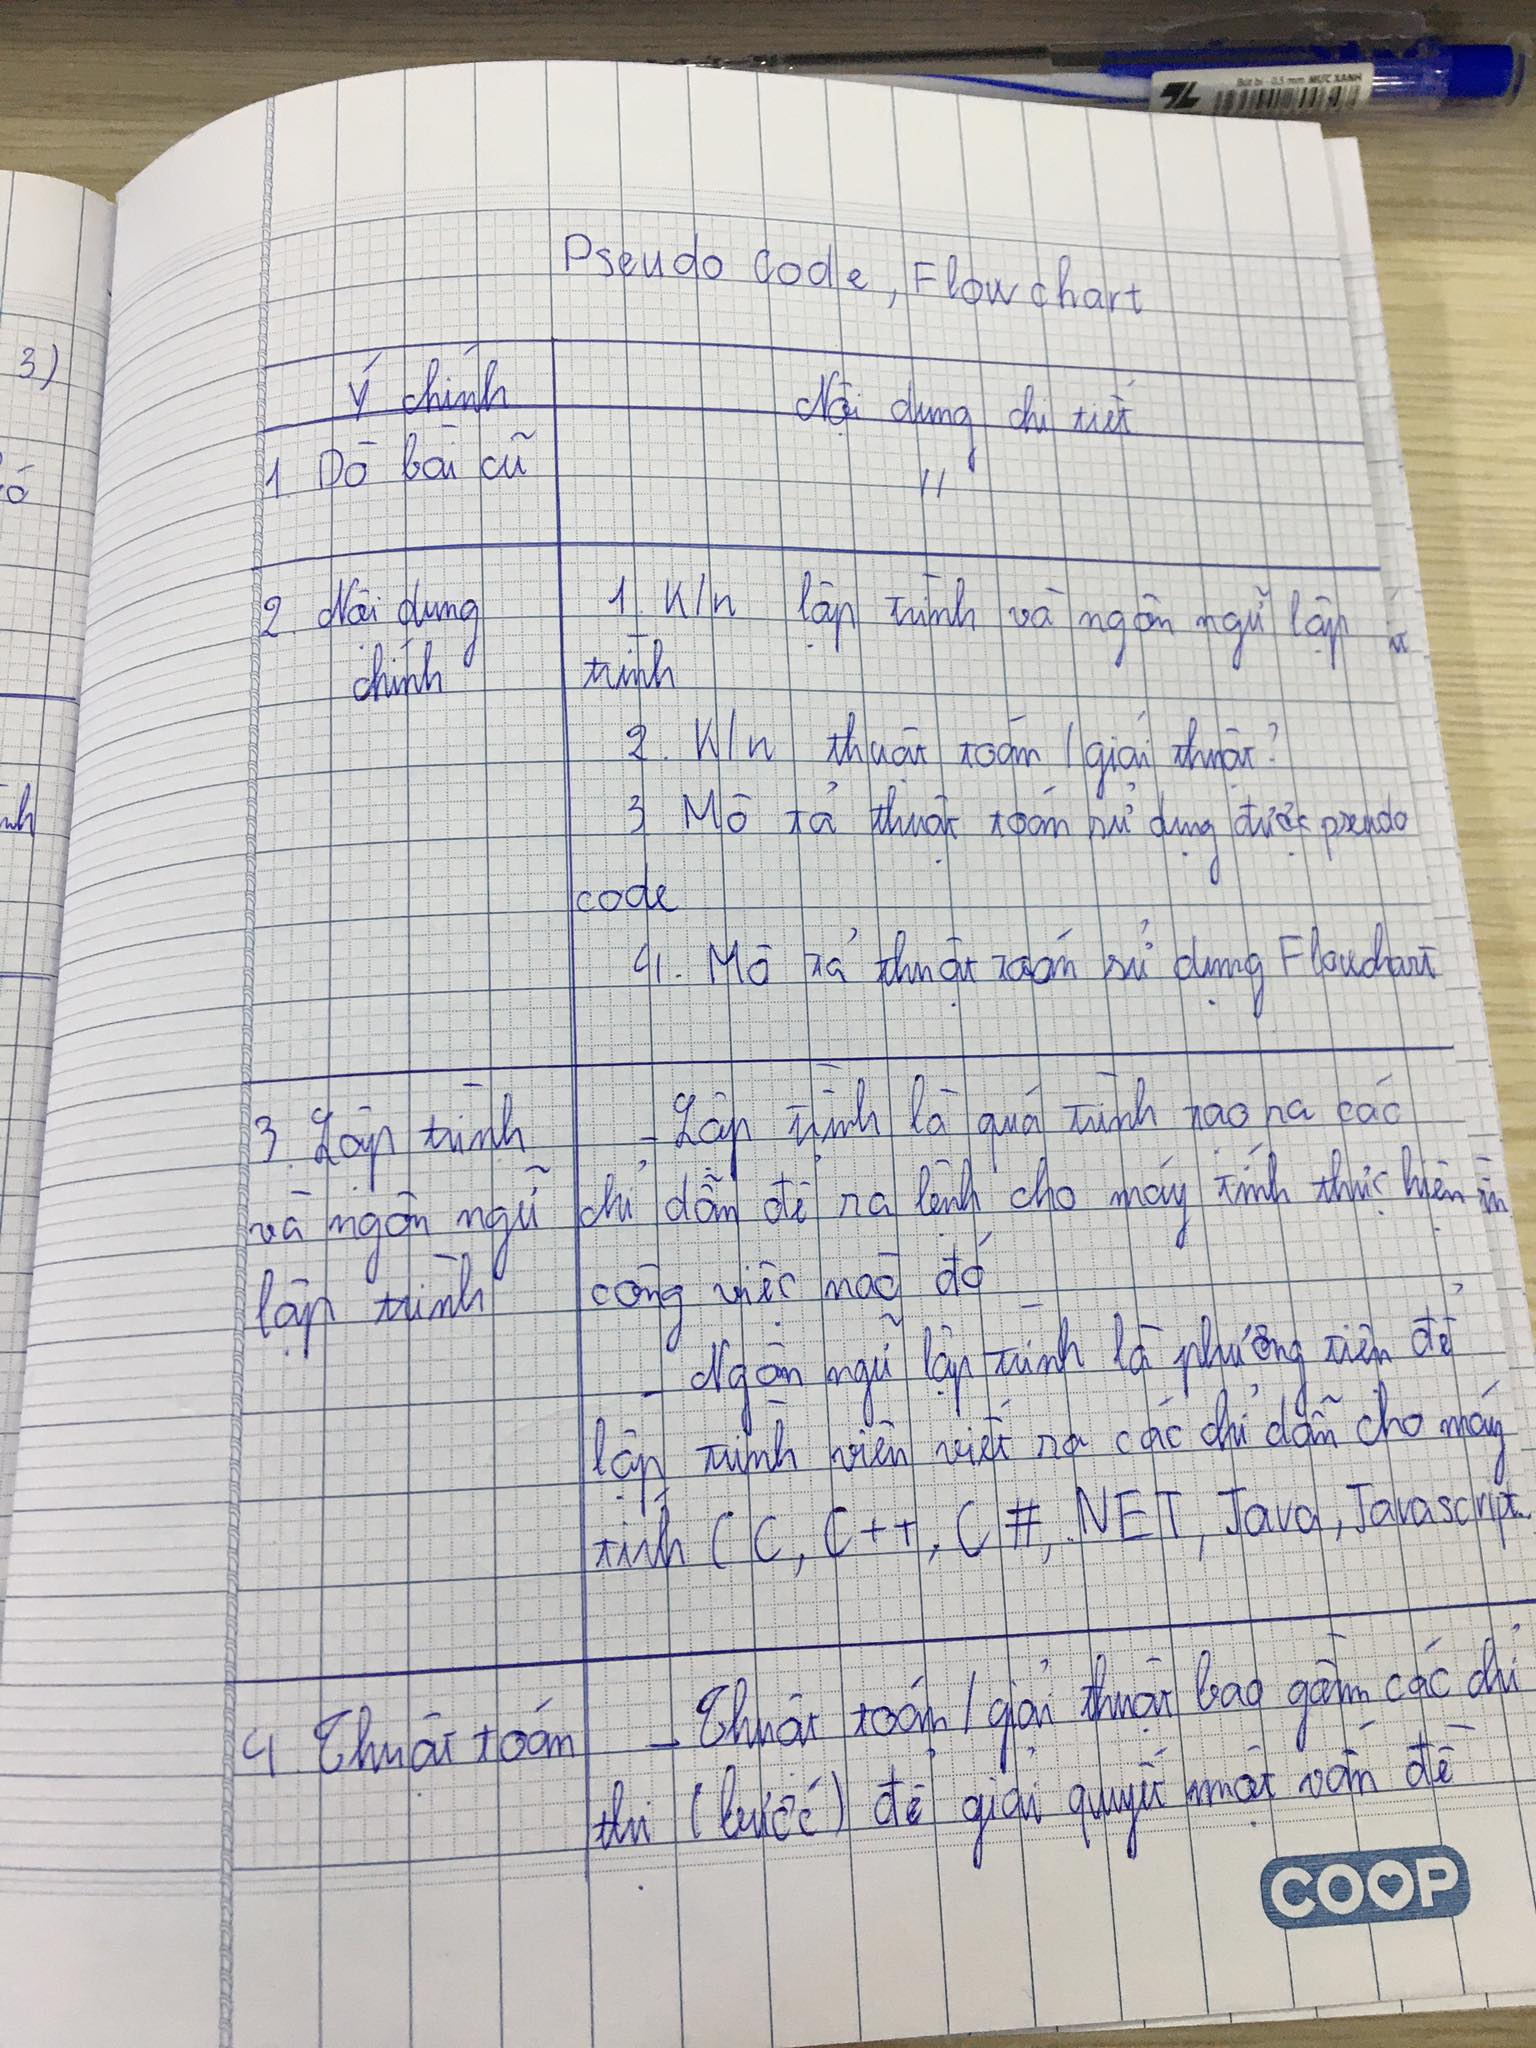 Bút bi - 0.5 mm MỰC XANH
3)
Pseudo code, Flowchart
Ý chính
Nội dung chi tiết
1. Dò bài cũ
"
2. Nội dung
chính
1. K/n lập trình và ngôn ngữ lập
trình
2. K/n thuật toán / giải thuật?
3 Mô tả thuật toán sử dụng được pseudo
code
4. Mô tả thuật toán sử dụng Flowchart
3. Lập trình
và ngôn ngữ
lập trình
- Lập trình là quá trình tạo ra các
chỉ dẫn để ra lệnh cho máy tính thực hiện
công việc nào đó
- Ngôn ngữ lập trình là phương tiện để
lập trình viên viết ra các chỉ dẫn cho máy
tính (C, C++, C#, .NET, Java, Javascript..
4. Thuật toán
- Thuật toán / giải thuật bao gồm các chỉ
thị (bước) để giải quyết một vấn đề
COOP